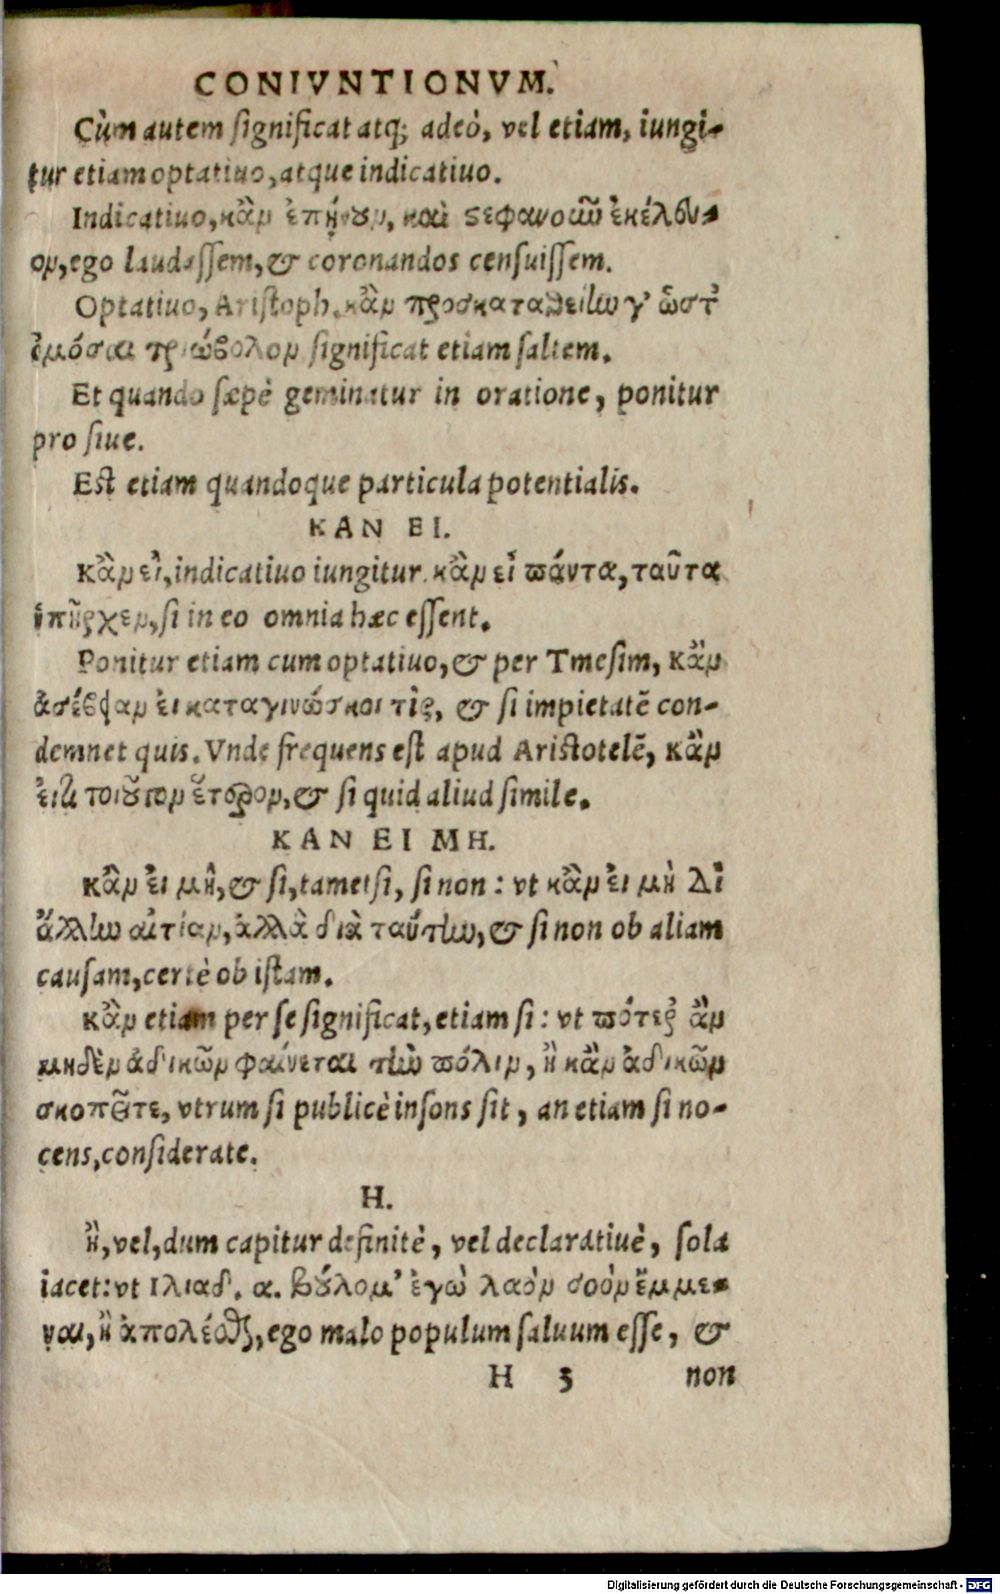 CONIVNTIONVM.
Cùm autem significat atq; adeò, vel etiam, iungi-
tur etiam optatiuo, atque indicatiuo.
Indicatiuo, κἂν ἐπῄνουν, καὶ στεφανοῦν ἐκέλευ-
ον, ego laudassem, & coronandos censuissem.
Optatiuo, Aristoph. κἂν προσκαταθείην γ' ὥστ'
ὀμόσαι τριώβολον significat etiam saltem.
Et quando sæpè geminatur in oratione, ponitur
pro siue.
Est etiam quandoque particula potentialis.
ΚΑΝ ΕΙ.
κἂν εἰ, indicatiuo iungitur. κἂν εἰ πάντα, ταῦτα
ὑπῆρχεν, si in eo omnia hæc essent.
Ponitur etiam cum optatiuo, & per Tmesim, κἂν
ἀσέβειαν εἰ καταγινώσκοι τὶς, & si impietatẽ con-
demnet quis. Vnde frequens est apud Aristotelẽ, κἂν
εἴ τι τοιοῦτον ἕτερον, & si quid aliud simile.
ΚΑΝ ΕΙ ΜΗ.
κἂν εἰ μὴ, & si, tametsi, si non: vt κἂν εἰ μὴ δι'
ἄλλην αἰτίαν, ἀλλὰ διὰ ταύτην, & si non ob aliam
causam, certè ob istam.
κἂν etiam per se significat, etiam si: vt πότερ' ἂν
μηδὲν ἀδικῶν φαίνεται τὴν πόλιν, ἢ κἂν ἀδικῶν
σκοπεῖτε, vtrum si publicè insons sit, an etiam si no-
cens, considerate.
Η.
ἢ, vel, dum capitur definitè, vel declaratiuè, sola
iacet: vt Ιλιαδ. α. βούλομ' ἐγὼ λαὸν σόον ἔμμε-
ναι, ἢ ἀπολέσθαι, ego malo populum saluum esse, &
H 3 non
Digitalisierung gefördert durch die Deutsche Forschungsgemeinschaft - DFG